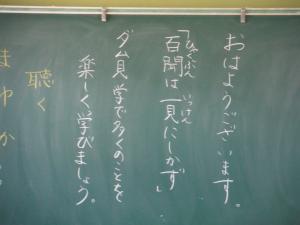 おはようございます。
「百聞は一見にしかず」
ひゃくぶん いっけん
ダム見学で多くのことを
楽しく学びましょう。
聴く